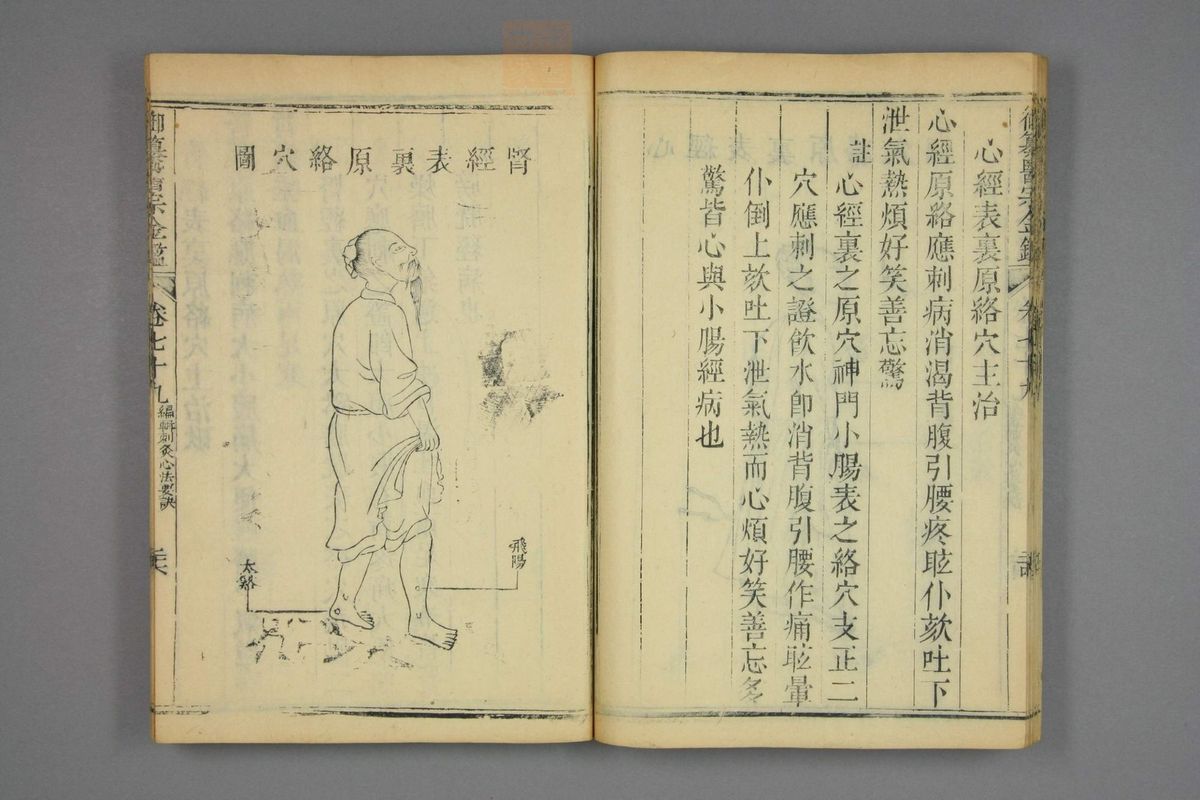 心經表裏原絡穴主治
心經原絡應刺病消渴背腹引腰疼眩仆欬吐下
泄氣熱煩好笑善忘驚
註
心經裏之原穴神門小腸表之絡穴支正二
穴應刺之證飲水即消背腹引腰作痛眩暈
仆倒上欬吐下泄氣熱而心煩好笑善忘多
驚皆心與小腸經病也
腎經表裏原絡穴圖
飛陽
太谿
御纂醫宗金鑑
卷七十九
編輯刺灸心法要訣